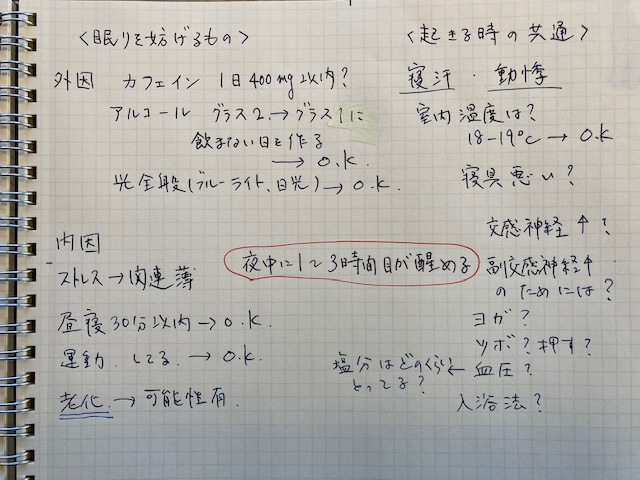 ＜眠りを妨げるもの＞
外因 カフェイン 1日400mg以内?
アルコール グラス2→グラス1に
飲まない日を作る
→O.K.
光全般(ブルーライト、日光)→O.K.
内因
ストレス→関連薄
昼寝30分以内→O.K.
運動 してる →O.K.
老化 →可能性有.
夜中に1〜3時間目が醒める
＜起きる時の共通＞
寝汗・動悸
室内温度は?
18-19℃→O.K
寝具悪い?
交感神経↑?
副交感神経↑
のためには?
ヨガ?
ツボ?押す?
血圧?
←塩分はどのくらい
とってる?
入浴法?